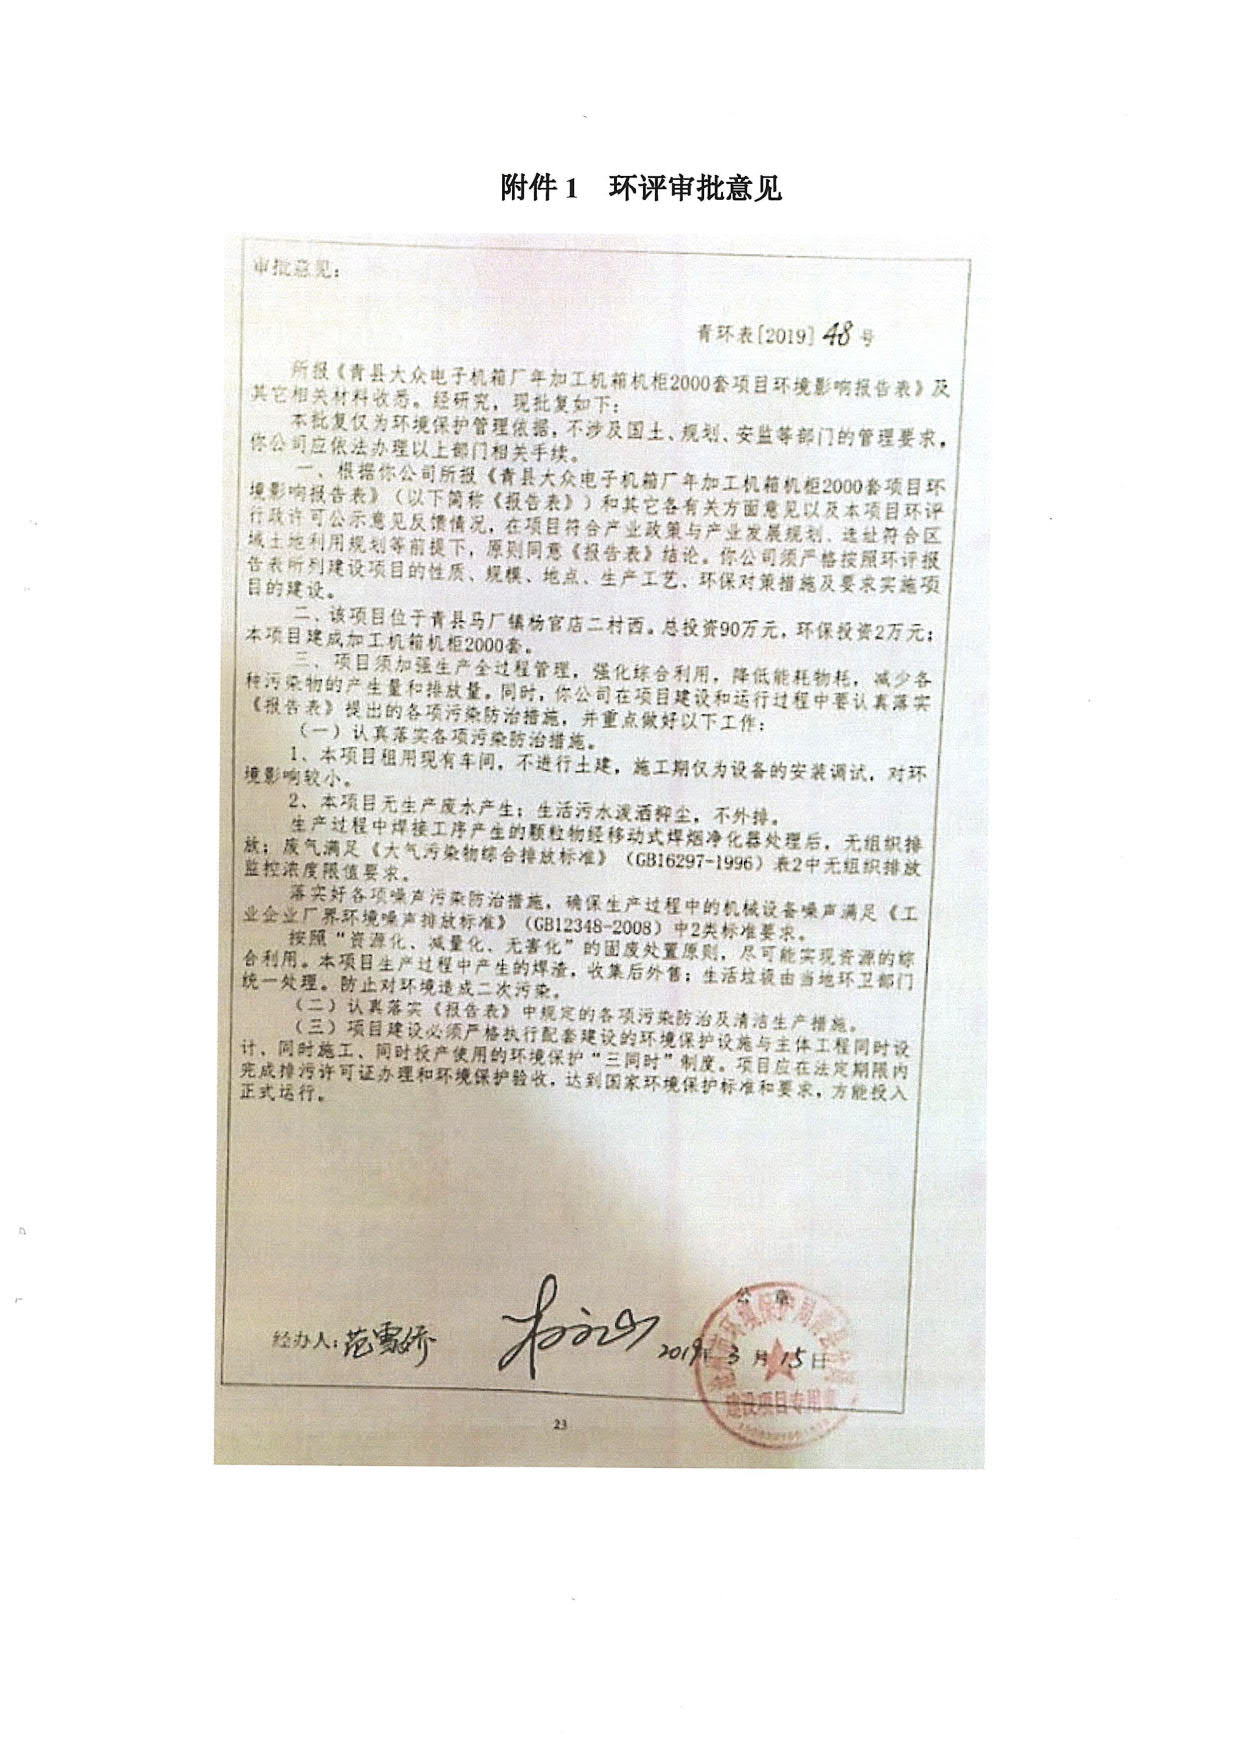 附件1 环评审批意见
审批意见：
青环表[2019] 48 号
所报《青县大众电子机箱厂年加工机箱机柜2000套项目环境影响报告表》及
其它相关材料收悉。经研究，现批复如下：
本批复仅为环境保护管理依据，不涉及国土、规划、安监等部门的管理要求，
你公司应依法办理以上部门相关手续。
一、根据你公司所报《青县大众电子机箱厂年加工机箱机柜2000套项目环
境影响报告表》（以下简称《报告表》）和其它各有关方面意见以及本项目环评
行政许可公示意见反馈情况，在项目符合产业政策与产业发展规划、选址符合区
域土地利用规划等前提下，原则同意《报告表》结论。你公司须严格按照环评报
告表所列建设项目的性质、规模、地点、生产工艺、环保对策措施及要求实施项
目的建设。
二、该项目位于青县马厂镇杨官店二村西。总投资90万元，环保投资2万元；
本项目建成加工机箱机柜2000套。
三、项目须加强生产全过程管理，强化综合利用，降低能耗物耗，减少各
种污染物的产生量和排放量。同时，你公司在项目建设和运行过程中要认真落实
《报告表》提出的各项污染防治措施，并重点做好以下工作：
（一）认真落实各项污染防治措施。
1、本项目租用现有车间，不进行土建，施工期仅为设备的安装调试，对环
境影响较小。
2、本项目无生产废水产生；生活污水泼洒抑尘，不外排。
生产过程中焊接工序产生的颗粒物经移动式焊烟净化器处理后，无组织排
放；废气满足《大气污染物综合排放标准》（GB16297-1996）表2中无组织排放
监控浓度限值要求。
落实好各项噪声污染防治措施，确保生产过程中的机械设备噪声满足《工
业企业厂界环境噪声排放标准》（GB12348-2008）中2类标准要求。
按照“资源化、减量化、无害化”的固废处置原则，尽可能实现资源的综
合利用。本项目生产过程中产生的焊渣，收集后外售；生活垃圾由当地环卫部门
统一处理。防止对环境造成二次污染。
（二）认真落实《报告表》中规定的各项污染防治及清洁生产措施。
（三）项目建设必须严格执行配套建设的环境保护设施与主体工程同时设
计、同时施工、同时投产使用的环境保护“三同时”制度。项目应在法定期限内
完成排污许可证办理和环境保护验收，达到国家环境保护标准和要求，方能投入
正式运行。
公 章
经办人：范雪娇
2019年 3 月 15 日
建设项目专用章
23